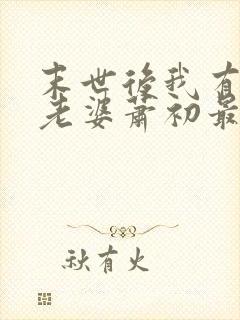 末世後我有
老婆蕭初最
秋有火